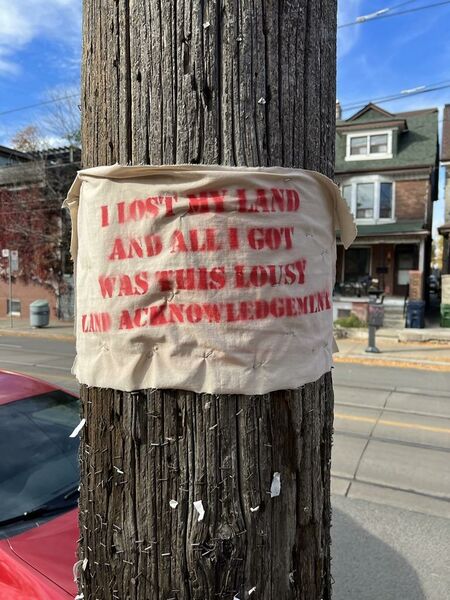 I LOST MY LAND
AND ALL I GOT
WAS THIS LOUSY
LAND ACKNOWLEDGEMENT